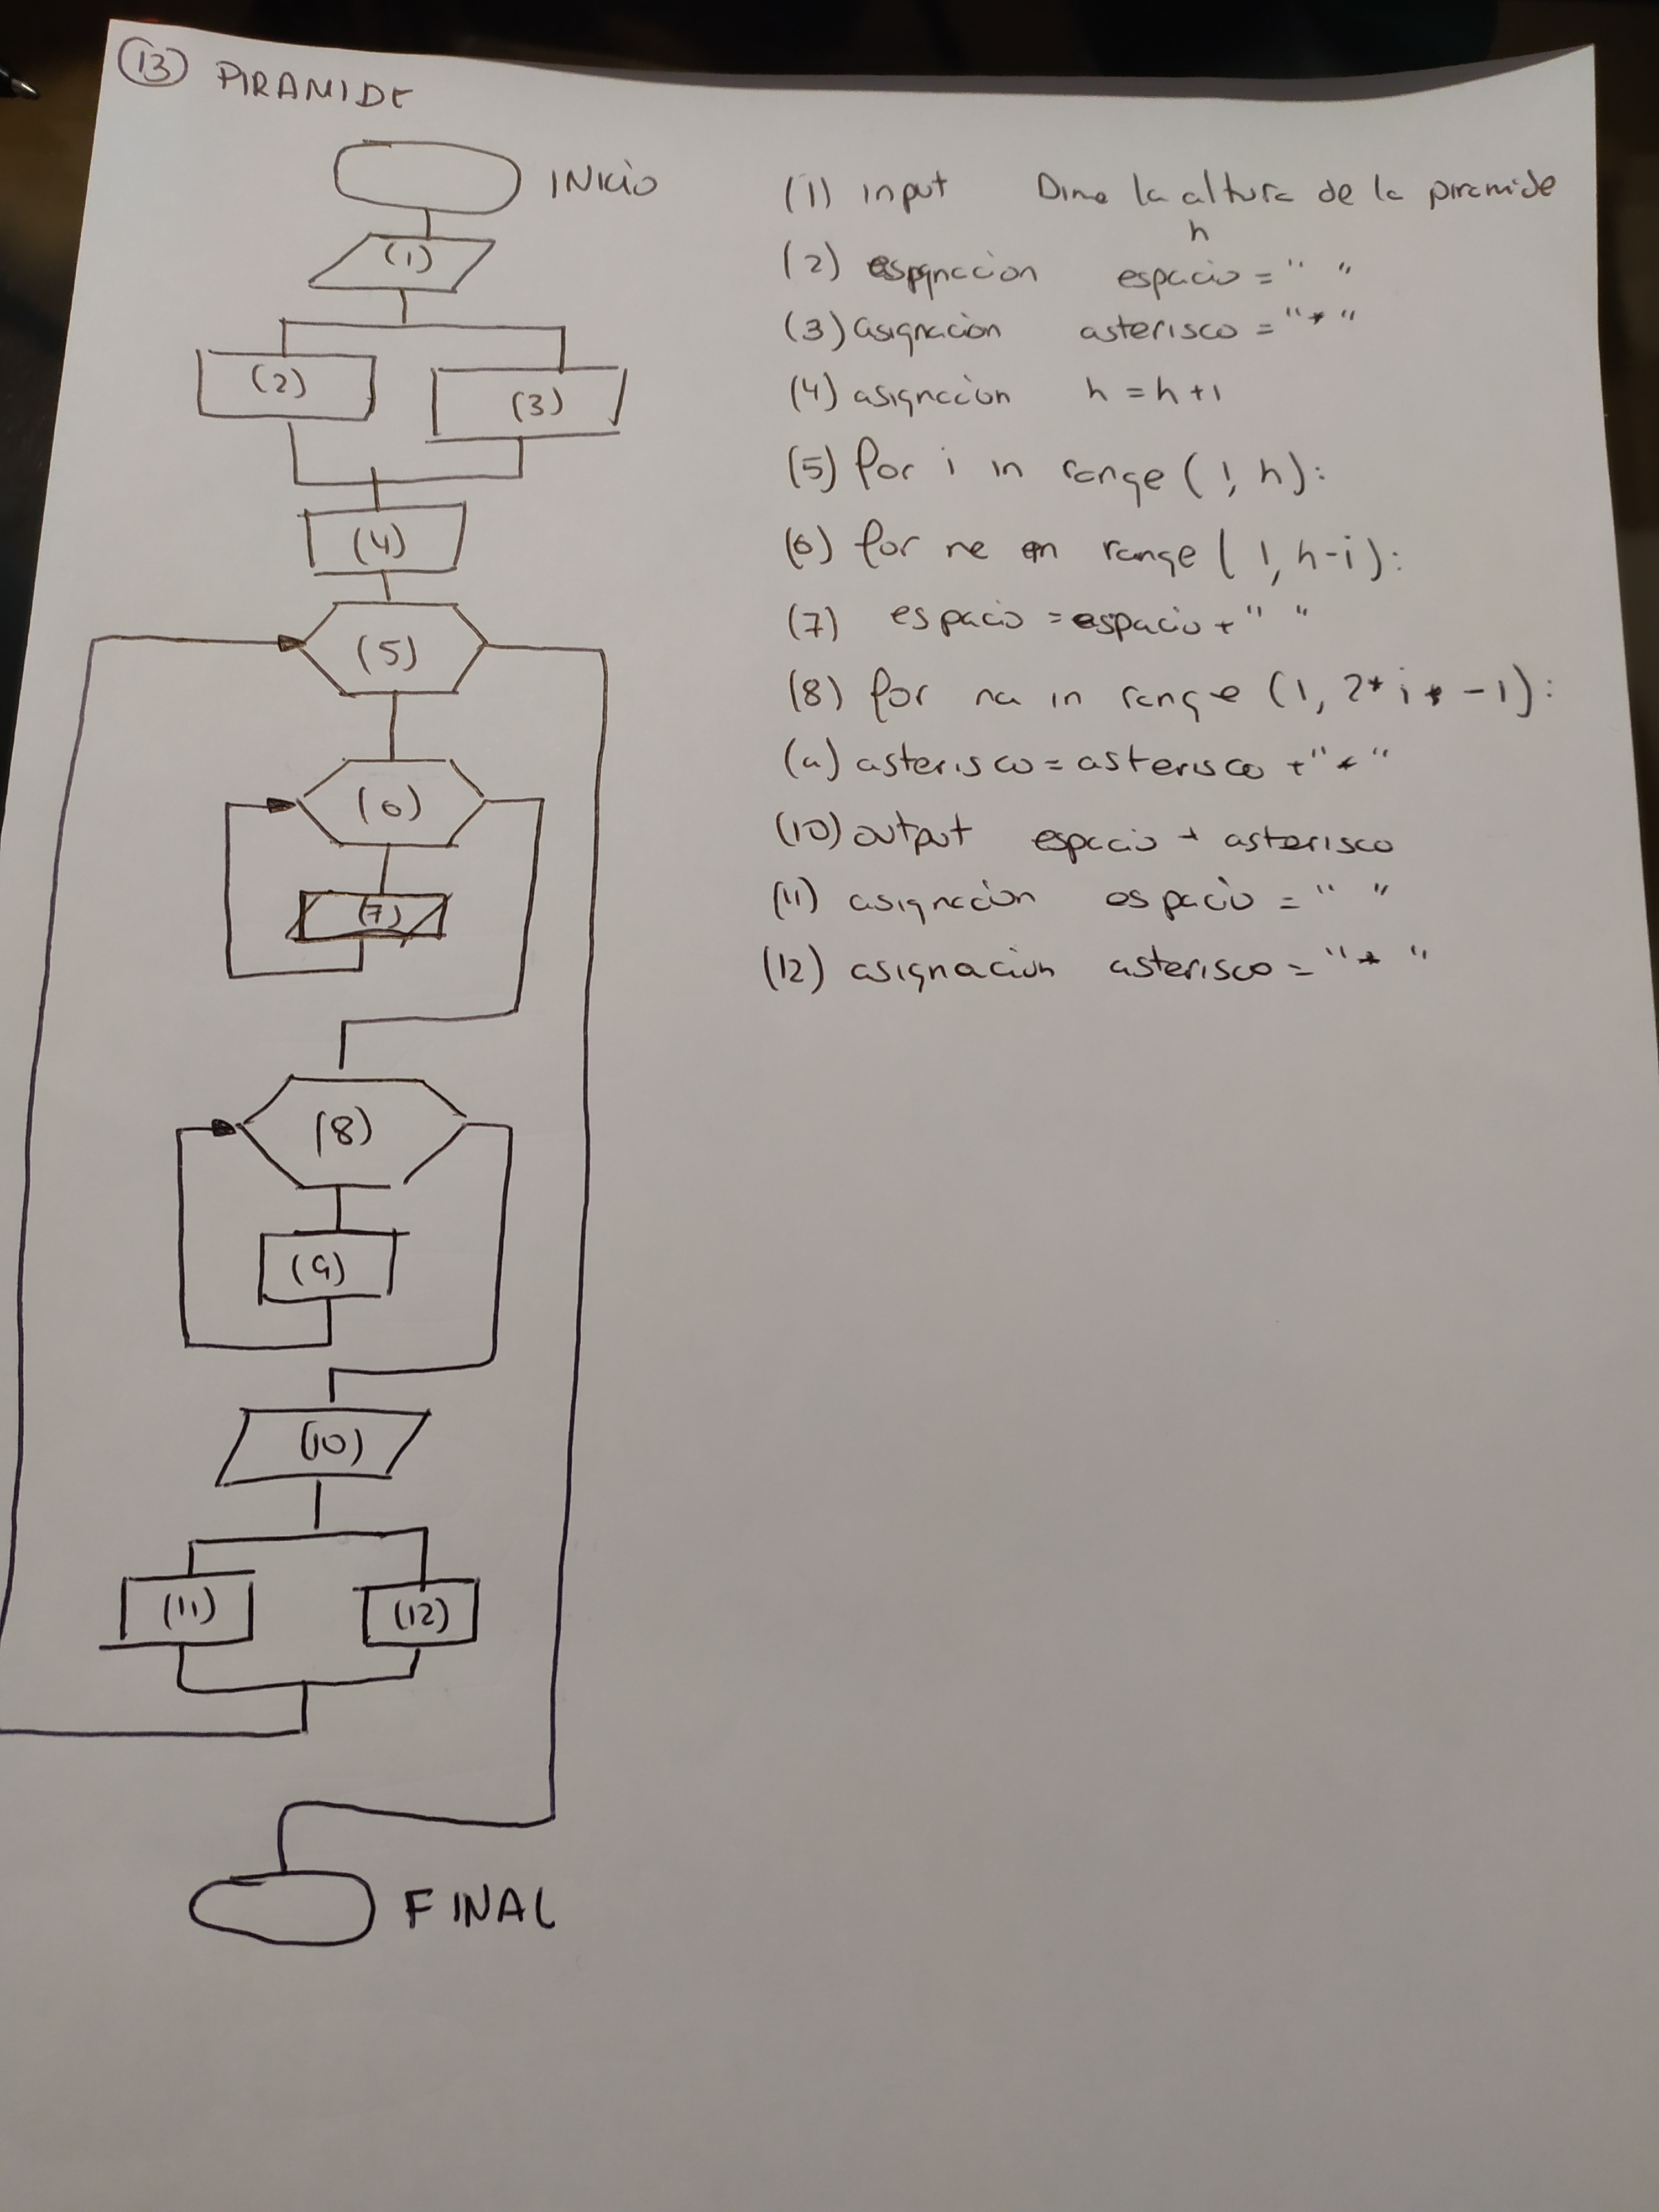 (13) PIRAMIDE
INICIO
(1)
(2)
(3)
(4)
(5)
(6)
(7)
(8)
(9)
(10)
(11)
(12)
FINAL
(1) input Dime la altura de la piramide
h
(2) espacio = " "
(3) asignacion asterisco = "*"
(4) asignacion h = h+1
(5) for i in range (1, h):
(6) for ne en range (1, h-i):
(7) espacio = espacio + " "
(8) for na in range (1, 2*i -1):
(9) asterisco = asterisco + "*"
(10) output espacio + asterisco
(11) asignacion espacio = " "
(12) asignacion asterisco = "* "